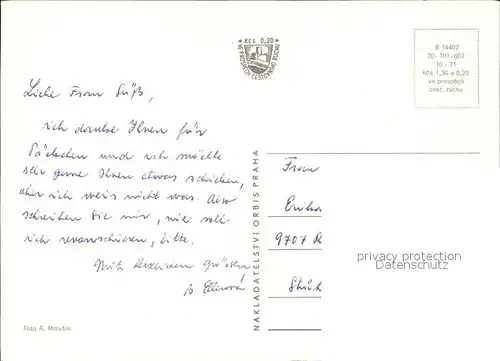 Kčs 0,20
VE PROSPĚCH CESTOVNÍHO RUCHU
B 14407
20-101-607
10-71
Kčs 1,30 a 0,20
ve prospěch
cest. ruchu
Liebe Frau Süß,
ich danke Ihnen für
Päckchen und ich möchte
sehr gerne Ihnen etwas schicken,
aber ich weis nicht was. Also
schreiben Sie mir, wie soll
ich revanschieren, bitte.
Mit herzeiden Grüssen
NAKLADATELSTVÍ ORBIS PRAHA
Frau
Erika
9707
privacy protection
Datenschutz
Foto A.